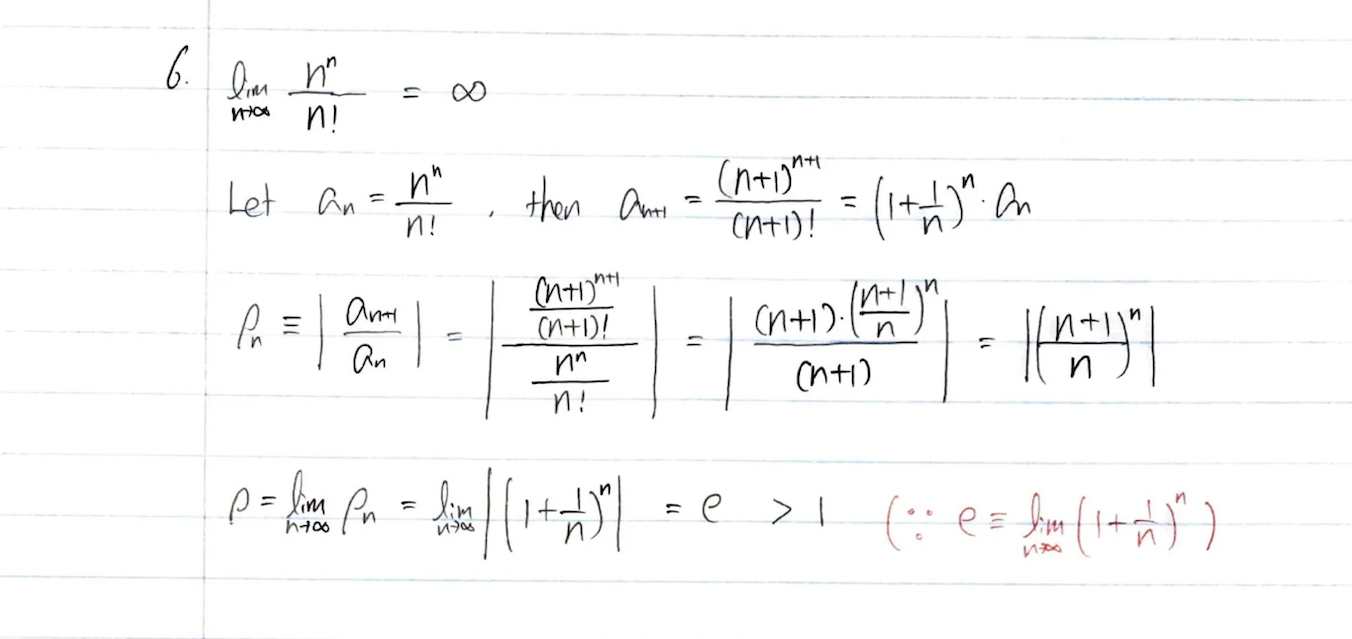 6. lim_{n→∞} n^n / n! = ∞
Let a_n = n^n / n! , then a_{n+1} = (n+1)^{n+1} / (n+1)! = (1 + 1/n)^n · a_n
ρ_n ≡ | a_{n+1} / a_n | = | ((n+1)^{n+1} / (n+1)!) / (n^n / n!) | = | (n+1)·((n+1)/n)^n / (n+1) | = | ((n+1)/n)^n |
ρ = lim_{n→∞} ρ_n = lim_{n→∞} | (1 + 1/n)^n | = e > 1 (∵ e ≡ lim_{n→∞} (1 + 1/n)^n )